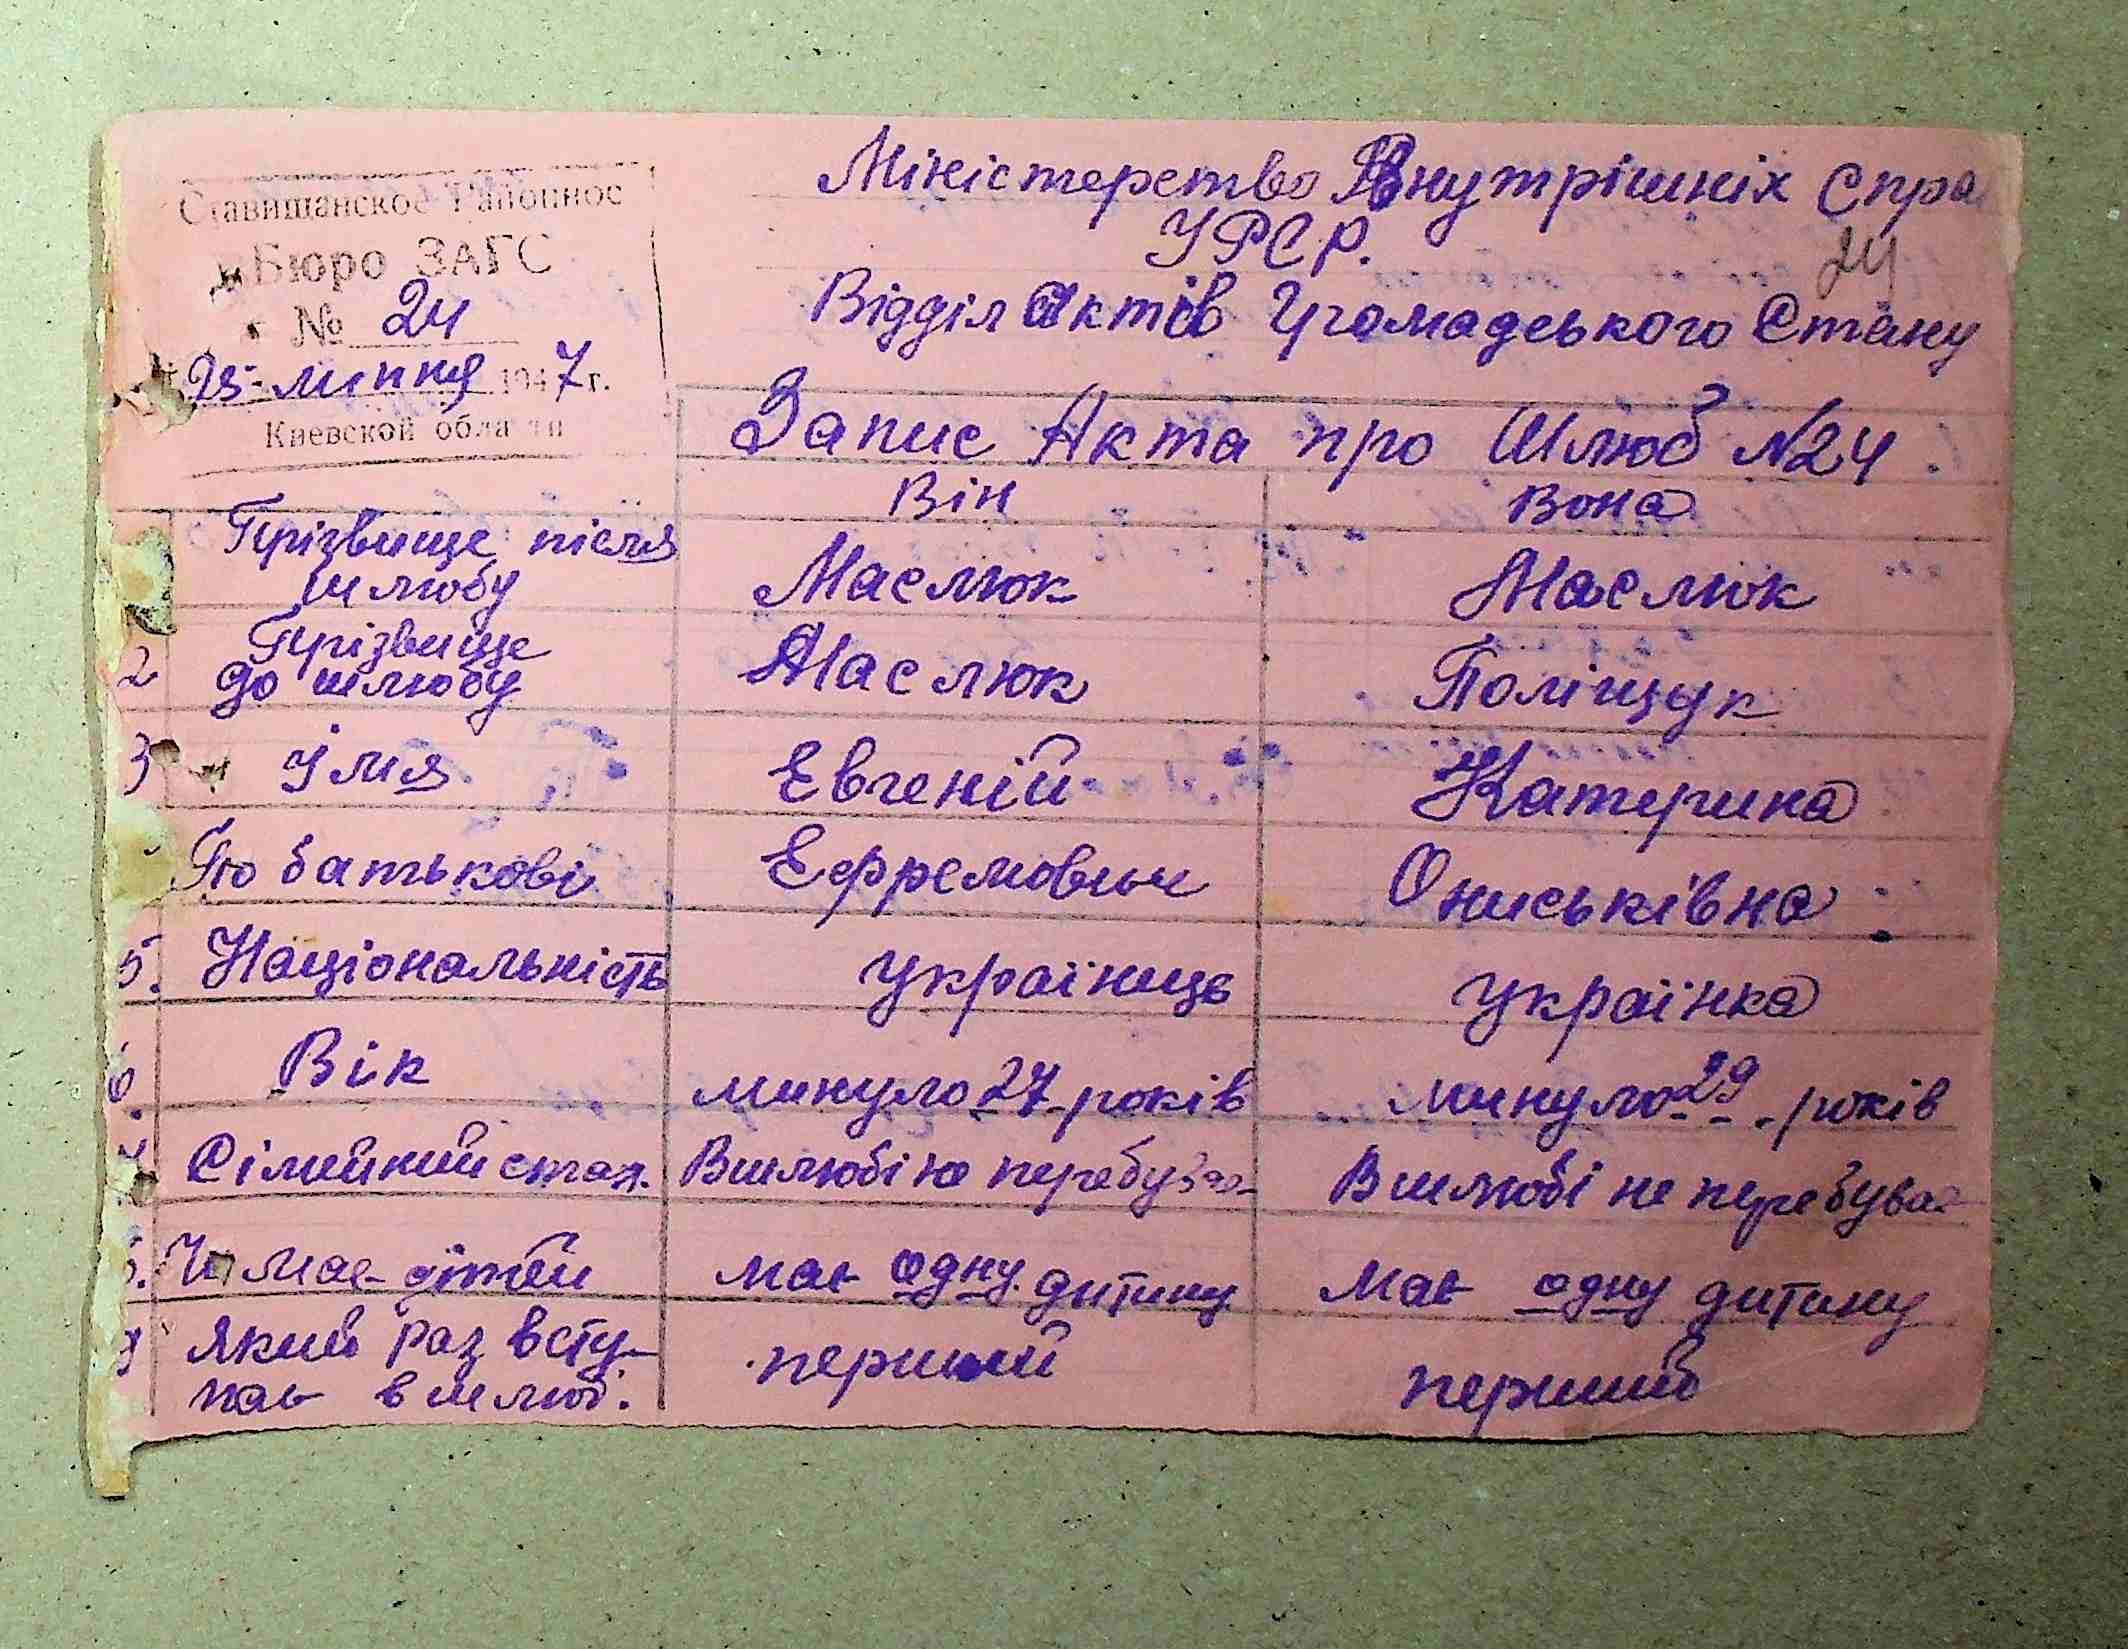 Ставищанское Районное
Бюро ЗАГС
№ 24
25 липня 1947 г.
Киевской области
Міністерство Внутрішніх Спра
УРСР.
24
Відділ Актів Громадського Стану
Запис Акта про Шлюб №24.
Він Вона
Прізвище після шлюбу Маслюк Маслюк
2 Прізвище до шлюбу Маслюк Поліщук
3 Імя Евгеній Катерина
По батькові Ефремович Ониськівна
5. Національність українець українка
6. Вік минуло 27 років минуло 29 років
7. Сімейний стан. В шлюбі не перебуває В шлюбі не перебуває
8. Чи має дітей має одну дитину має одну дитину
9 який раз всту-
пає в шлюб. перший перший